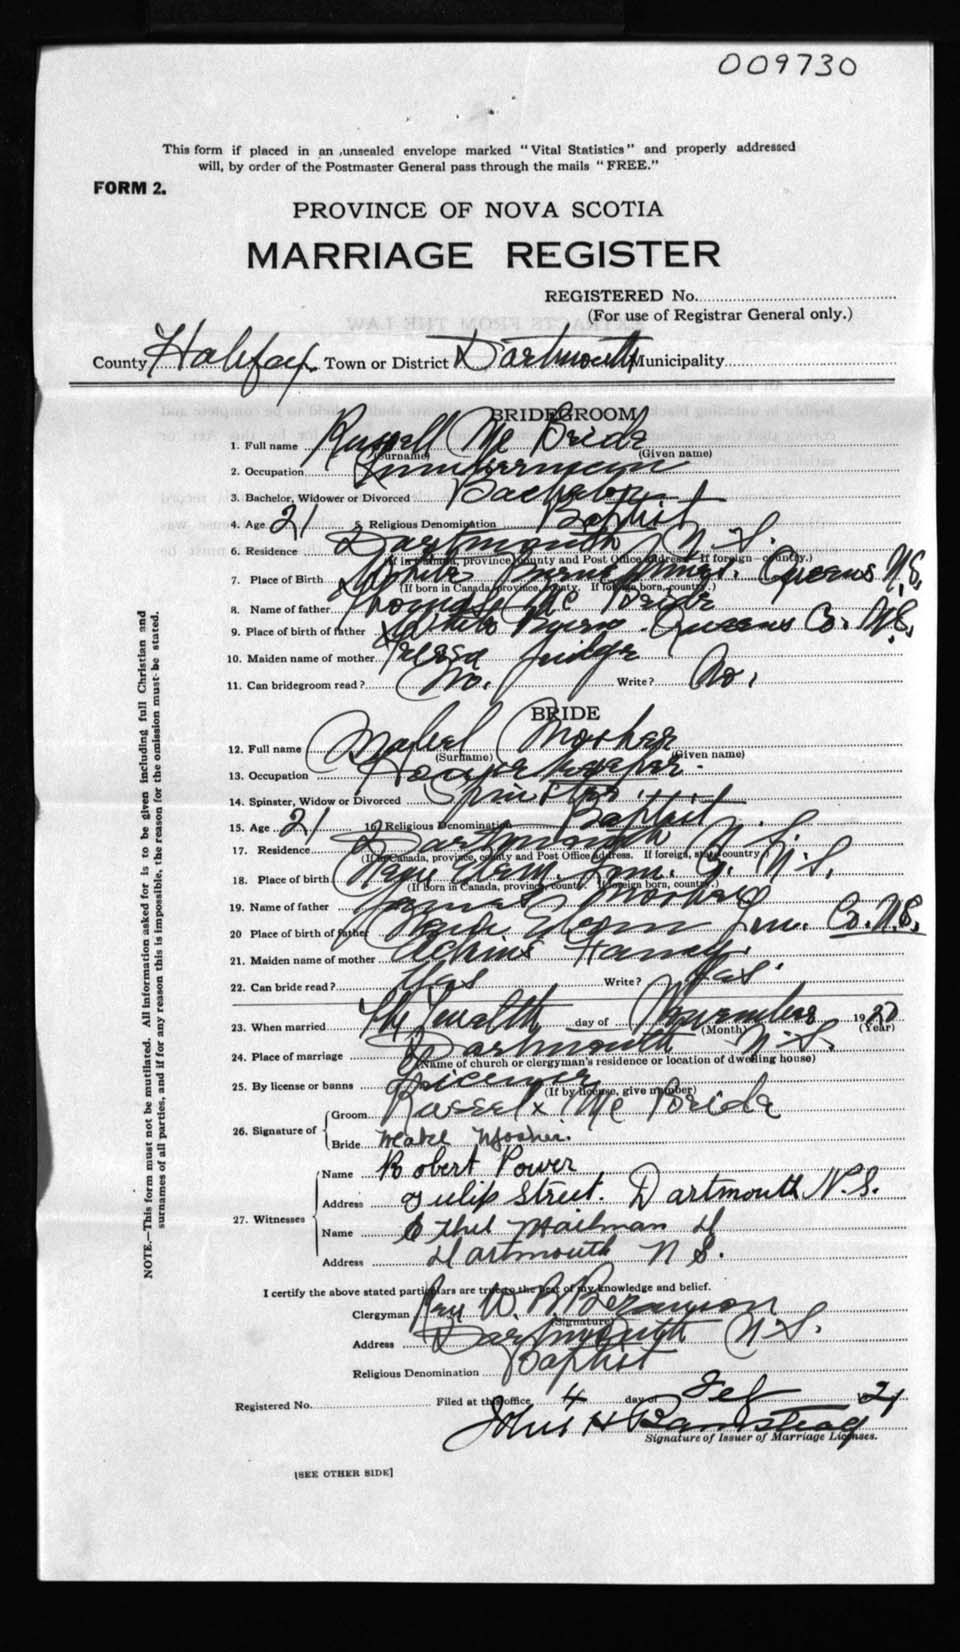 009730
This form if placed in an unsealed envelope marked "Vital Statistics" and properly addressed
will, by order of the Postmaster General pass through the mails "FREE."
FORM 2.
PROVINCE OF NOVA SCOTIA
MARRIAGE REGISTER
REGISTERED No.
(For use of Registrar General only.)
County Halifax Town or District Dartmouth Municipality
BRIDEGROOM
1. Full name Russell Mc Bride
(Surname) (Given name)
2. Occupation Lumberman
3. Bachelor, Widower or Divorced Bachelor
4. Age 21 5. Religious Denomination Baptist
6. Residence Dartmouth N.S.
(If in Canada, province, county and Post Office address. If foreign country.)
7. Place of Birth White Queens N.S.
(If born in Canada, province, county. If foreign born, country.)
8. Name of father Thomas Mc Bride
9. Place of birth of father White Queens Co. N.S.
10. Maiden name of mother Judge
11. Can bridegroom read? No. Write? No.
BRIDE
12. Full name Mabel Mosher
(Surname) (Given name)
13. Occupation Housekeeper.
14. Spinster, Widow or Divorced Spinster.
15. Age 21 16 Religious Denomination Baptist
17. Residence Dartmouth N.S.
(If in Canada, province, county and Post Office address. If foreign, state country)
18. Place of birth N.S.
(If born in Canada, province, county. If foreign born, country.)
19. Name of father Mosher
20 Place of birth of father Co. N.S.
21. Maiden name of mother
22. Can bride read? Yas Write? Yas.
23. When married The Twealth day of November 1920
(Month) (Year)
24. Place of marriage Dartmouth N.S.
(Name of church or clergyman's residence or location of dwelling house)
25. By license or banns License
(If by license, give number)
26. Signature of
Groom Russel x Mc Bride
Bride Mosher.
27. Witnesses
Name Robert Power
Address Tulip Street. Dartmouth N.S.
Name Ethel Mailman
Address Dartmouth N S.
I certify the above stated particulars are true to the best of my knowledge and belief.
Clergyman Rev W.
(Signature)
Address Dartmouth N.S.
Religious Denomination Baptist
Registered No. Filed at this office 4 day of Feb 21
John H
Signature of Issuer of Marriage Licenses.
[SEE OTHER SIDE]
NOTE.—This form must not be mutilated. All information asked for is to be given including full Christian and
surnames of all parties, and if for any reason this is impossible, the reason for the omission must be stated.